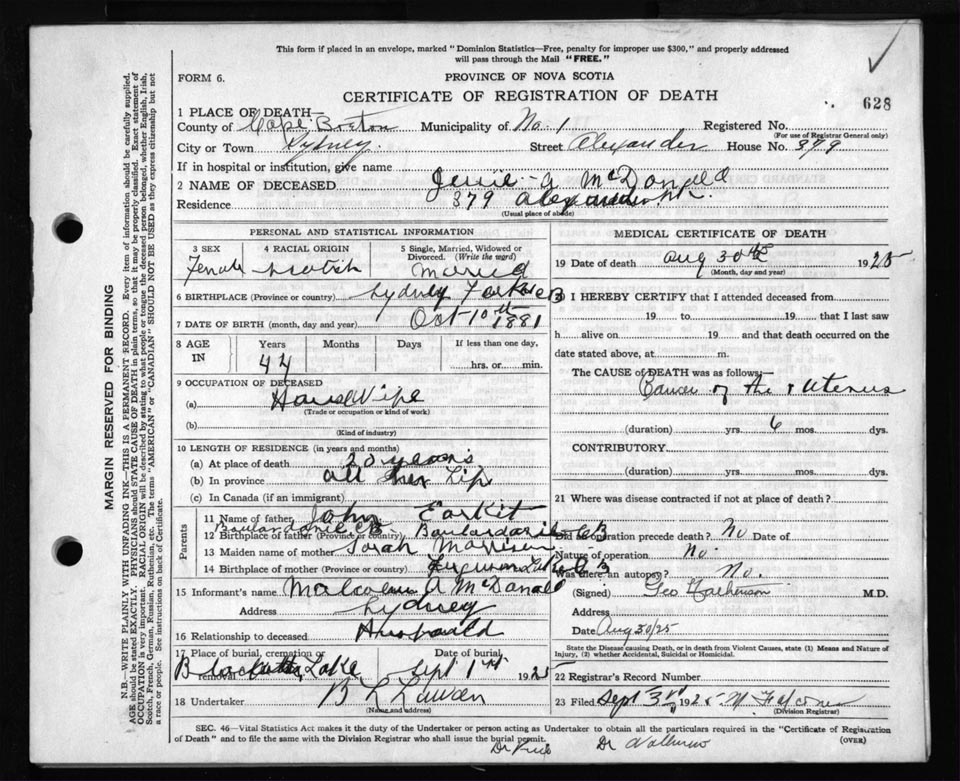 This form if placed in an envelope, marked "Dominion Statistics—Free, penalty for improper use $300," and properly addressed
will pass through the Mail "FREE."
FORM 6.
PROVINCE OF NOVA SCOTIA
628
CERTIFICATE OF REGISTRATION OF DEATH
1 PLACE OF DEATH—
County of Cape Breton Municipality of No. 1 Registered No.
(For use of Registrar General only)
City or Town Sydney. Street Alexander House No. 379
If in hospital or institution, give name
2 NAME OF DECEASED A McDonald
Residence 379 Alexander
(Usual place of abode)
PERSONAL AND STATISTICAL INFORMATION
3 SEX 4 RACIAL ORIGIN 5 Single, Married, Widowed or
Divorced. (Write the word)
Female Scotch Married
6 BIRTHPLACE (Province or country) Sydney Forks CB
7 DATE OF BIRTH (month, day and year) Oct 10th 1881
8 AGE IN Years Months Days If less than one day,
44 hrs. or min.
9 OCCUPATION OF DECEASED
(a) HouseWife
(Trade or occupation or kind of work)
(b)
(Kind of industry)
10 LENGTH OF RESIDENCE (in years and months)
(a) At place of death 20 years
(b) In province all her Life
(c) In Canada (if an immigrant)
Parents
11 Name of father John
12 Birthplace of father (Province or country) CB
13 Maiden name of mother Sarah Morrison
14 Birthplace of mother (Province or country) Lake CB
15 Informant's name Malcolm A McDonald
Address Sydney
16 Relationship to deceased Husband
17 Place of burial, cremation or Date of burial
Lake Sept 1st 1925
18 Undertaker
(Name and address)
MEDICAL CERTIFICATE OF DEATH
19 Date of death Aug 30th 1925
(Month, day and year)
I HEREBY CERTIFY that I attended deceased from
19 to 19 that I last saw
h alive on 19 and that death occurred on the
date stated above, at m.
The CAUSE OF DEATH was as follows:
Cancer of the Uterus
(duration) yrs. 6 mos. dys.
CONTRIBUTORY
(duration) yrs. mos. dys.
21 Where was disease contracted if not at place of death?
Did an operation precede death? No Date of
Nature of operation No.
Was there an autopsy? No.
(Signed) Geo M.D.
Address
Date Aug 30/25
State the Disease causing Death, or in death from Violent Causes, state (1) Means and Nature of
Injury, (2) whether Accidental, Suicidal or Homicidal.
22 Registrar's Record Number
23 Filed Sept 3rd 1925
(Division Registrar)
SEC. 46—Vital Statistics Act makes it the duty of the Undertaker or person acting as Undertaker to obtain all the particulars required in the "Certificate of Registration
of Death" and to file the same with the Division Registrar who shall issue the burial permit. (OVER)
Dr Dr
MARGIN RESERVED FOR BINDING
N.B.—WRITE PLAINLY WITH UNFADING INK—THIS IS A PERMANENT RECORD. Every item of information should be carefully supplied.
AGE should be stated EXACTLY. PHYSICIANS should STATE CAUSE OF DEATH in plain terms, so that it may be properly classified. Exact statement of
OCCUPATION is very important. RACIAL ORIGIN will be described by stating to what people or tongue the deceased person belonged, whether English, Irish,
Scotch, French, German, Russian, Ruthenian, etc. The terms "AMERICAN" or "CANADIAN" SHOULD NOT BE USED as they express citizenship but not
a race or people. See instructions on back of Certificate.